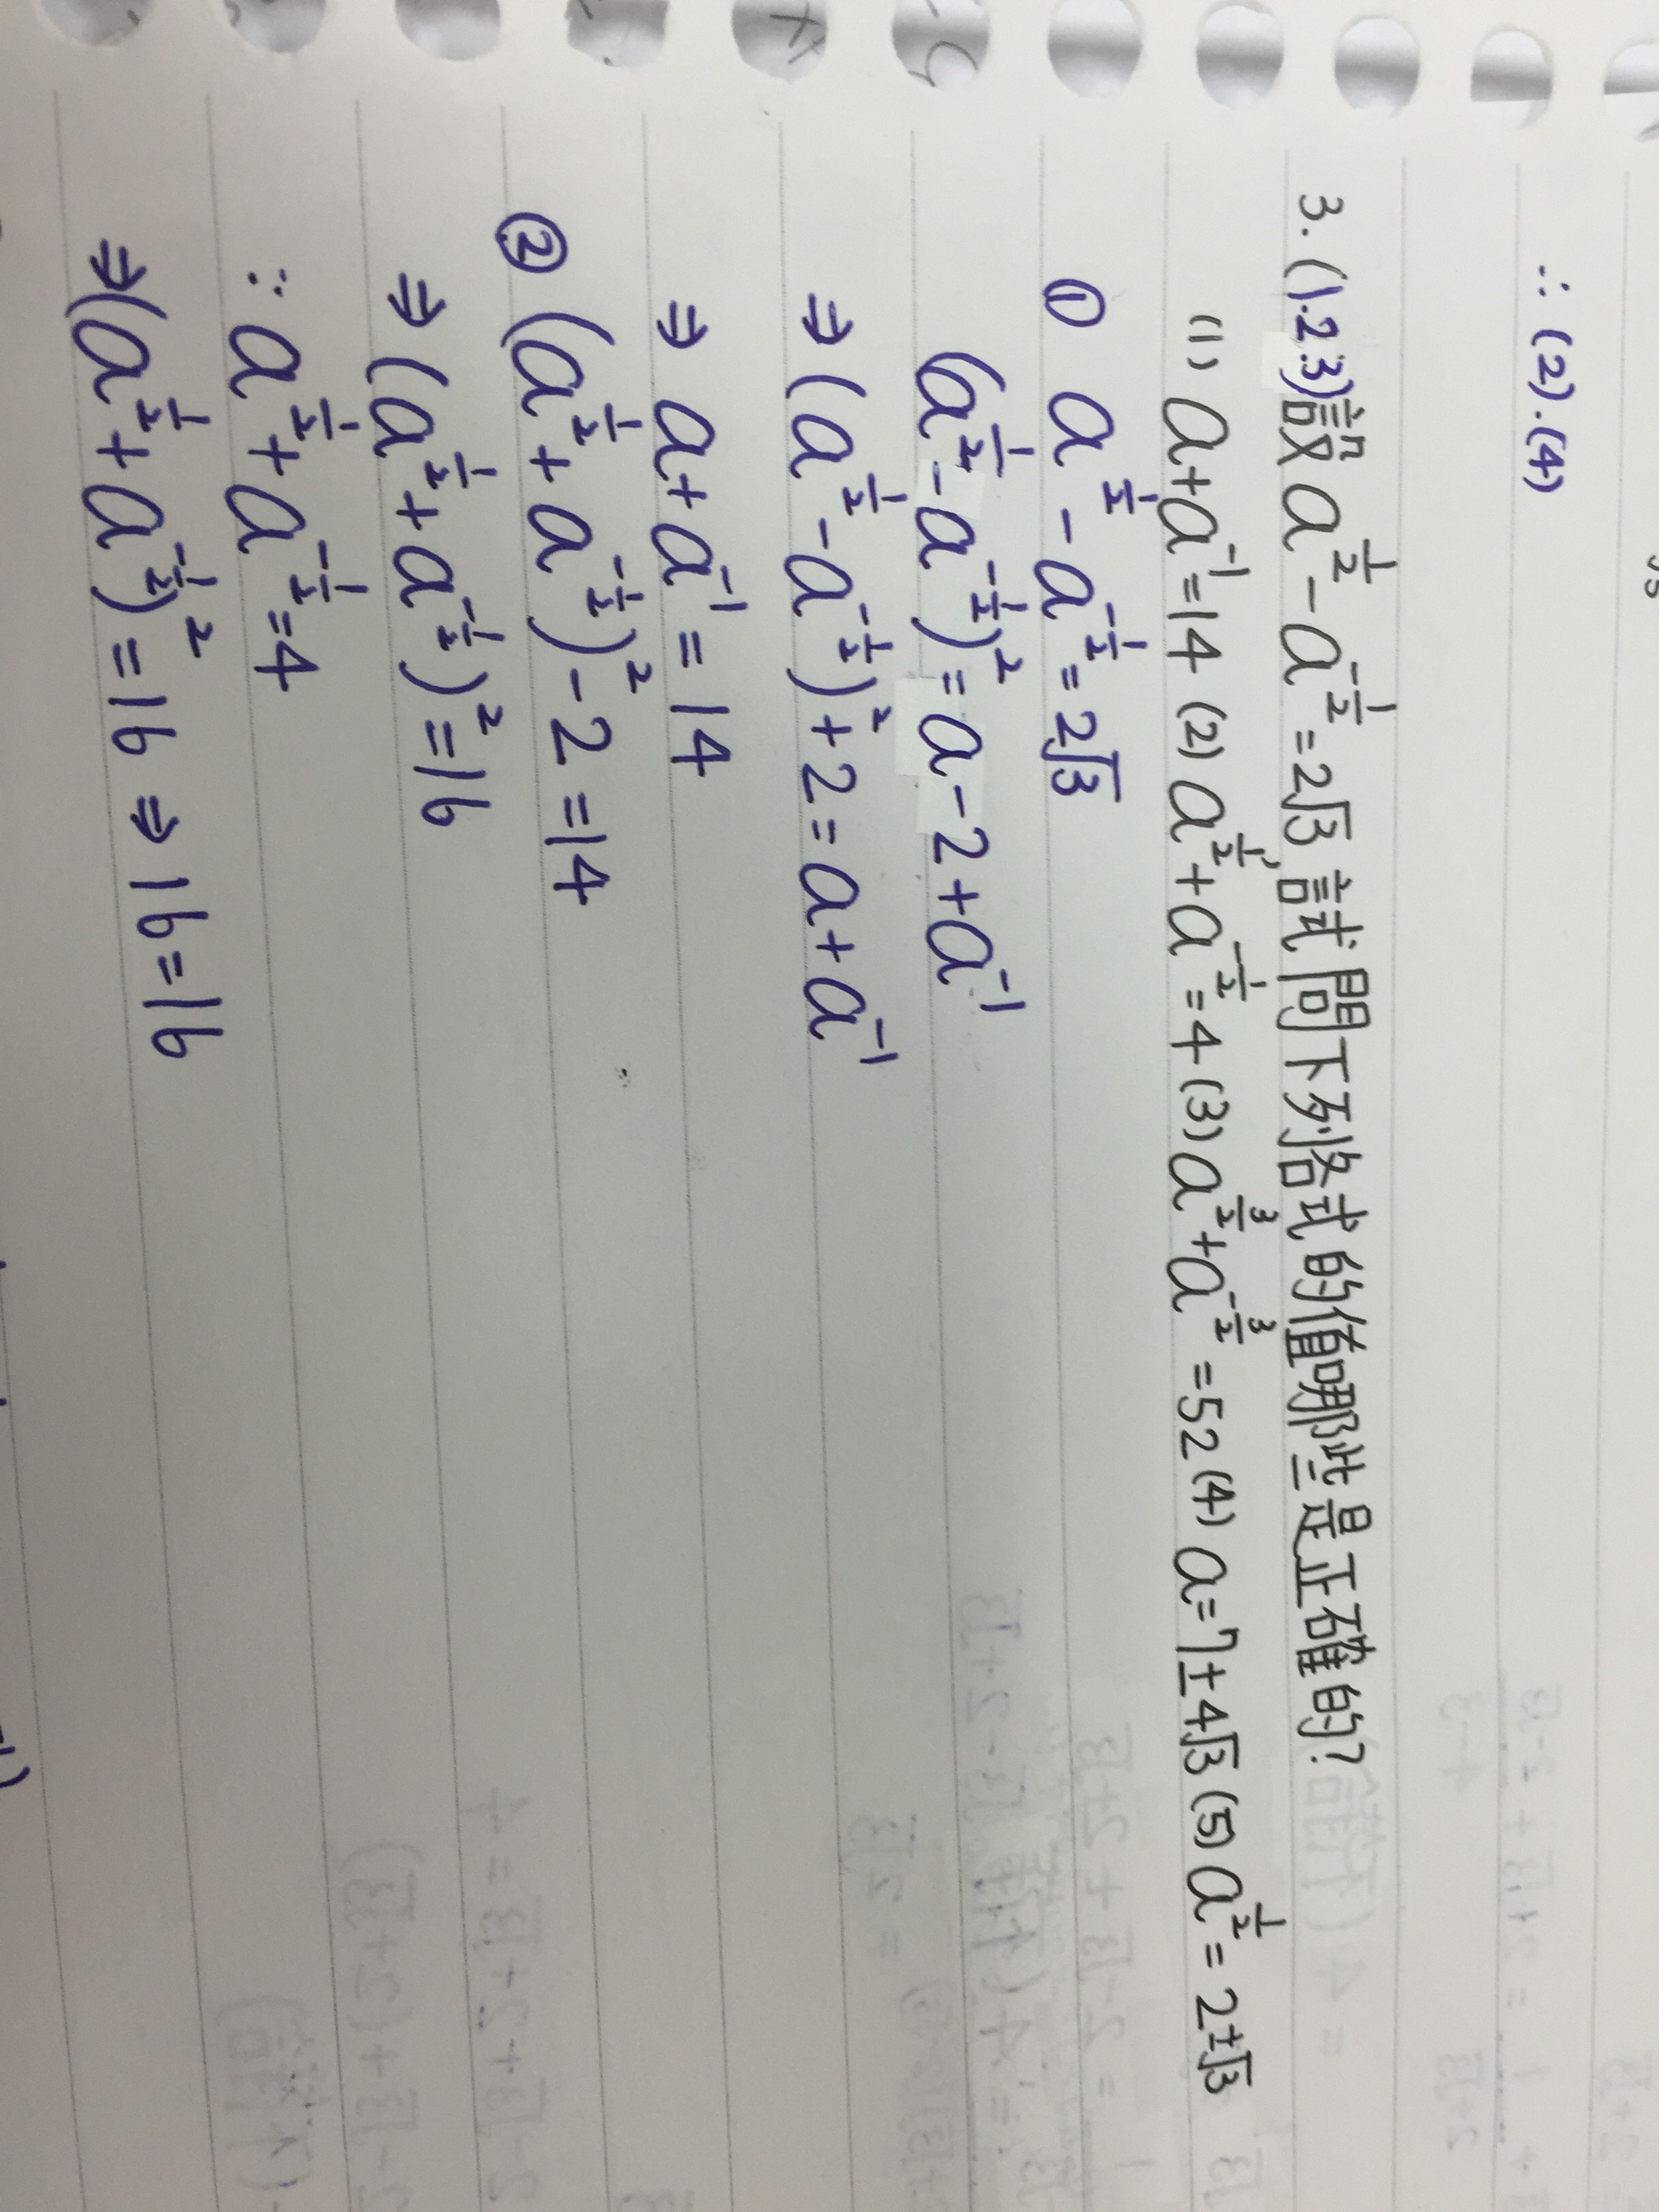 ∴ (2).(4)
3. (1.2.3) 設 a^{1/2} - a^{-1/2} = 2√3, 試問下列各式的值哪些是正確的?
(1) a+a^{-1}=14 (2) a^{1/2}+a^{-1/2}=4 (3) a^{3/2}+a^{-3/2}=52 (4) a=7±4√3 (5) a^{1/2}=2±√3
① a^{1/2}-a^{-1/2}=2√3
(a^{1/2}-a^{-1/2})^2=a-2+a^{-1}
⇒(a^{1/2}-a^{-1/2})^2+2=a+a^{-1}
⇒ a+a^{-1}=14
② (a^{1/2}+a^{-1/2})^2-2=14
⇒ (a^{1/2}+a^{-1/2})^2=16
∵ a^{1/2}+a^{-1/2}=4
⇒(a^{1/2}+a^{-1/2})^2=16 ⇒ 16=16